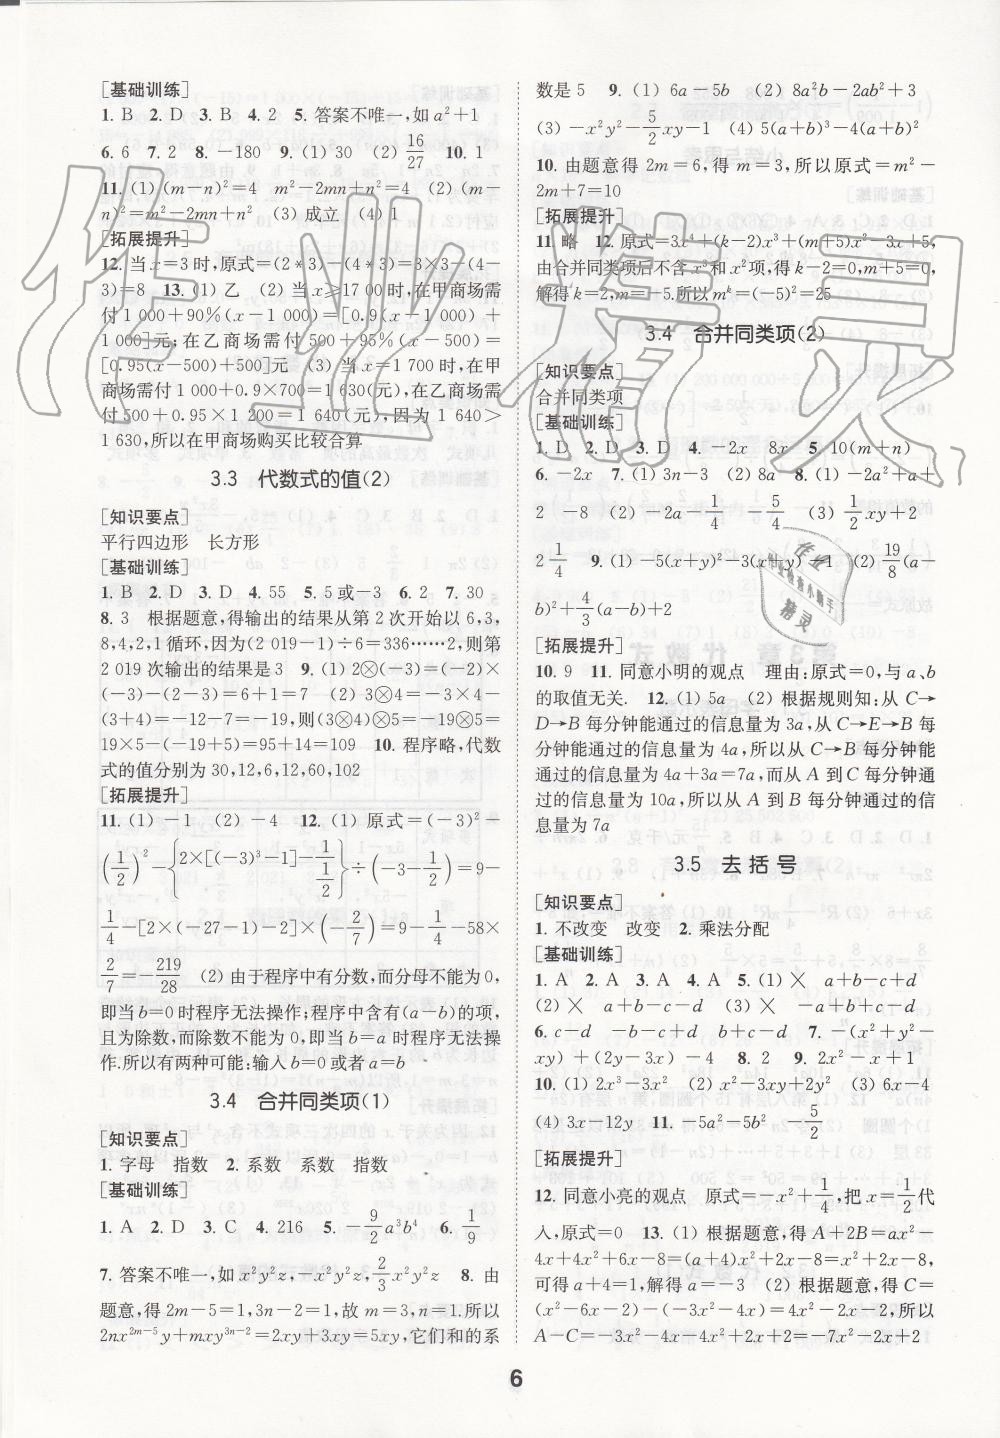 [基础训练]
1. B  2. D  3. B  4. 2  5. 答案不唯一,如a²+1
6. 6  7. 2  8. -180  9. (1) 30  (2) 16/27  10. 1
11. (1) (m-n)²=4  m²-2mn+n²=4  (2) (m-
n)²=m²-2mn+n²  (3) 成立  (4) 1
[拓展提升]
12. 当x=3时,原式=(2*3)-(4*3)=3×3-(4-
3)=8  13. (1) 乙  (2) 当x≥1 700时,在甲商场需
付1 000+90%(x-1 000)=[0.9(x-1 000)+
1 000]元;在乙商场需付500+95%(x-500)=
[0.95(x-500)+500]元  (3) 当x=1 700时,在甲
商场需付1 000+0.9×700=1 630(元),在乙商场需
付500+0.95×1 200=1 640(元),因为1 640>
1 630,所以在甲商场购买比较合算
3.3 代数式的值(2)
[知识要点]
平行四边形  长方形
[基础训练]
1. B  2. D  3. D  4. 55  5. 5或-3  6. 2  7. 30
8. 3  根据题意,得输出的结果从第2次开始以6,3,
8,4,2,1循环,因为(2 019-1)÷6=336……2,则第
2 019次输出的结果是3  9. (1) 2⊗(-3)=(-2)×
(-3)-(2-3)=6+1=7  (2) 3⊗4=-3×4-
(3+4)=-12-7=-19,则(3⊗4)⊗5=-19⊗5=
19×5-(-19+5)=95+14=109  10. 程序略,代数
式的值分别为30,12,6,12,60,102
[拓展提升]
11. (1) -1  (2) -4  12. (1) 原式=(-3)²-
(1/2)²-{2×[(-3)³-1]-1/(1/2)}÷(-3-1/2)=9-
1/4-[2×(-27-1)-2]×(-2/7)=9-1/4-58×
2/7=-219/28  (2) 由于程序中有分数,而分母不能为0,
即当b=0时程序无法操作;程序中含有(a-b)的项,
且为除数,而除数不能为0,即当b=a时程序无法操
作.所以有两种可能:输入b=0或者a=b
3.4 合并同类项(1)
[知识要点]
1. 字母  指数  2. 系数  系数  指数
[基础训练]
1. A  2. D  3. C  4. 216  5. -9/2a³b⁴  6. 1/9
7. 答案不唯一,如x²y²z,-x²y²z,2/3x²y²z  8. 由
题意,得2m-5=1,3n-2=1,故m=3,n=1.所以
2nx²ᵐ⁻⁵y+mxy³ⁿ⁻²=2xy+3xy=5xy,它们和的系
数是5  9. (1) 6a-5b  (2) 8a²b-2ab²+3
(3) -x²y²-5/2xy-1  (4) 5(a+b)³-4(a+b)²
10. 由题意得2m=6,得m=3,所以原式=m²-
2m+7=10
[拓展提升]
11. 略  12. 原式=3x⁴+(k-2)x³+(m+5)x²-3x+5,
由合并同类项后不含x³和x²项,得k-2=0,m+5=0,
解得k=2,m=-5.所以mᵏ=(-5)²=25
3.4 合并同类项(2)
[知识要点]
合并同类项
[基础训练]
1. D  2. D  3. D  4. -2x  8x  5. 10(m+n)
6. -2x  7. (1) 3n-3  (2) 8a  8. (1) -2a²+a+
2  -8  (2) -2a-1/4  -5/4  (3) 1/2xy+2
2 1/4  9. (1) -5(x+y)²-3(x+y)-1  (2) 19/8(a-
b)²+4/3(a-b)+2
[拓展提升]
10. 9  11. 同意小明的观点  理由:原式=0,与a、b
的取值无关.  12. (1) 5a  (2) 根据规则知:从C→
D→B每分钟能通过的信息量为3a,从C→E→B每
分钟能通过的信息量为4a,所以从C→B每分钟能
通过的信息量为4a+3a=7a,而从A到C每分钟通
过的信息量为10a,所以从A到B每分钟通过的信
息量为7a
3.5 去括号
[知识要点]
1. 不改变  改变  2. 乘法分配
[基础训练]
1. A  2. A  3. A  4. A  5. (1) ×  a+b-c+d
(2) ×  a+b-c-d  (3) ×  -a+b+c-d
6. c-d  -b-c+d  b+c-d  7. -(x²+y²-
xy)+(2y-3x)-4  8. 2  9. 2x²-x+1
10. (1) 2x³-3x²  (2) x²-3xy+2y²  (3) 6x-4
(4) 3x-12y  11. -5a²-5b²  -5/2
[拓展提升]
12. 同意小亮的观点  原式=-x²+1/4,把x=1/2代
人,原式=0  13. (1) 根据题意,得A+2B=ax²+
4x+4x²+6x-8=(a+4)x²+2x-8=x²+2x-8,
可得a+4=1,解得a=-3  (2) 根据题意,得C=
(x²-6x-2)-(-3x²-4x)=4x²-2x-2,所以
A-C=-3x²-4x-4x²+2x+2=-7x²-2x+2
6
作业精灵